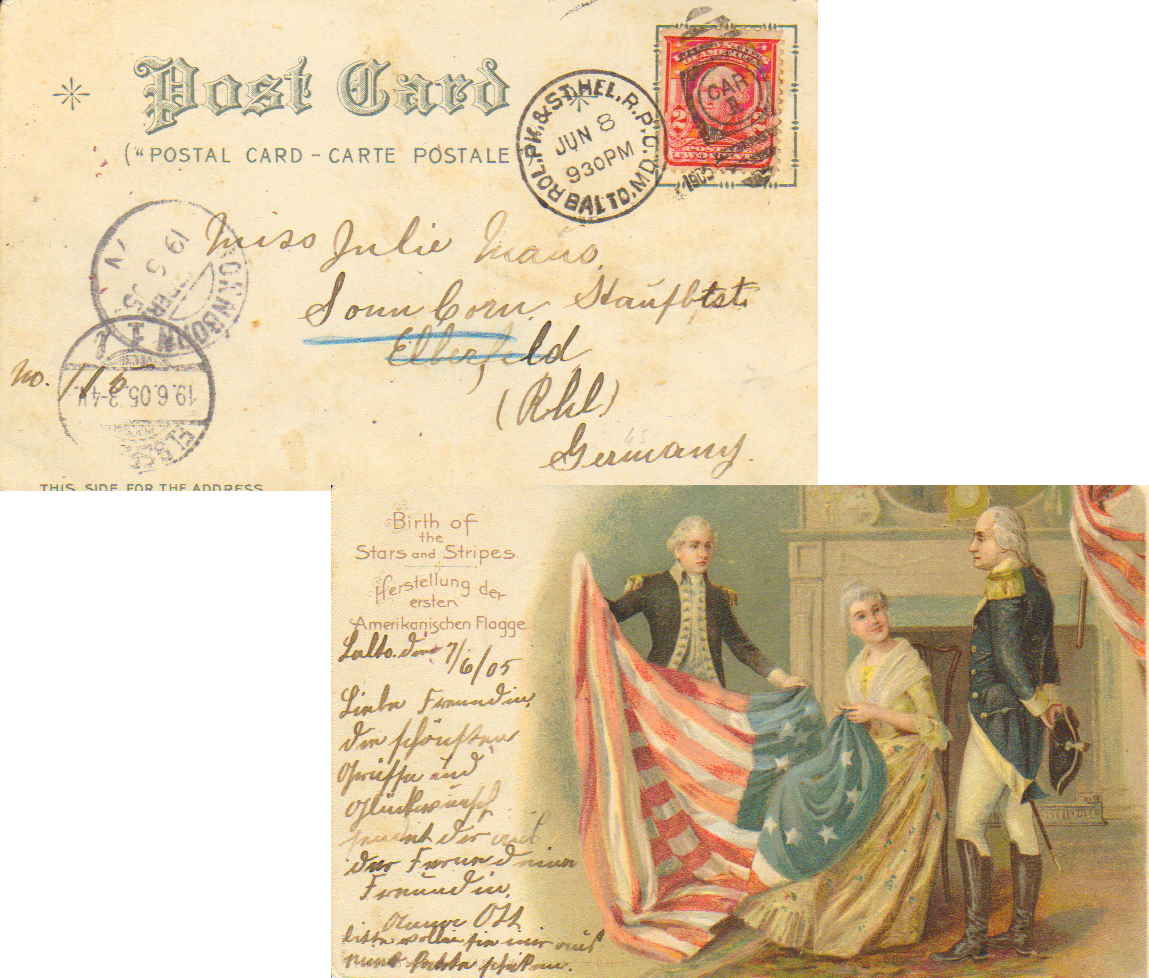 Post Card
("POSTAL CARD - CARTE POSTALE
ROL. PK. & ST. HEL. R.P.O.
JUN 8
930PM
BALTO, MD
CAR
1905
2
Miss Julie
Sonnborn
Elberfeld
(Rhl.)
Germany.
No.
SONNBORN
19 6 05
19.6.05. 3-4N
THIS SIDE FOR THE ADDRESS
Birth of
the
Stars and Stripes.
Herstellung der
ersten
Amerikanischen Flagge.
Balto. den 7/6/05
Liebe Freundin,
die schönsten
Grüsse und
Glückwunsch
sendet dir aus
der Ferne deine
Freundin,
Ott
bitte wollen sie mir auch
eine Karte schicken.